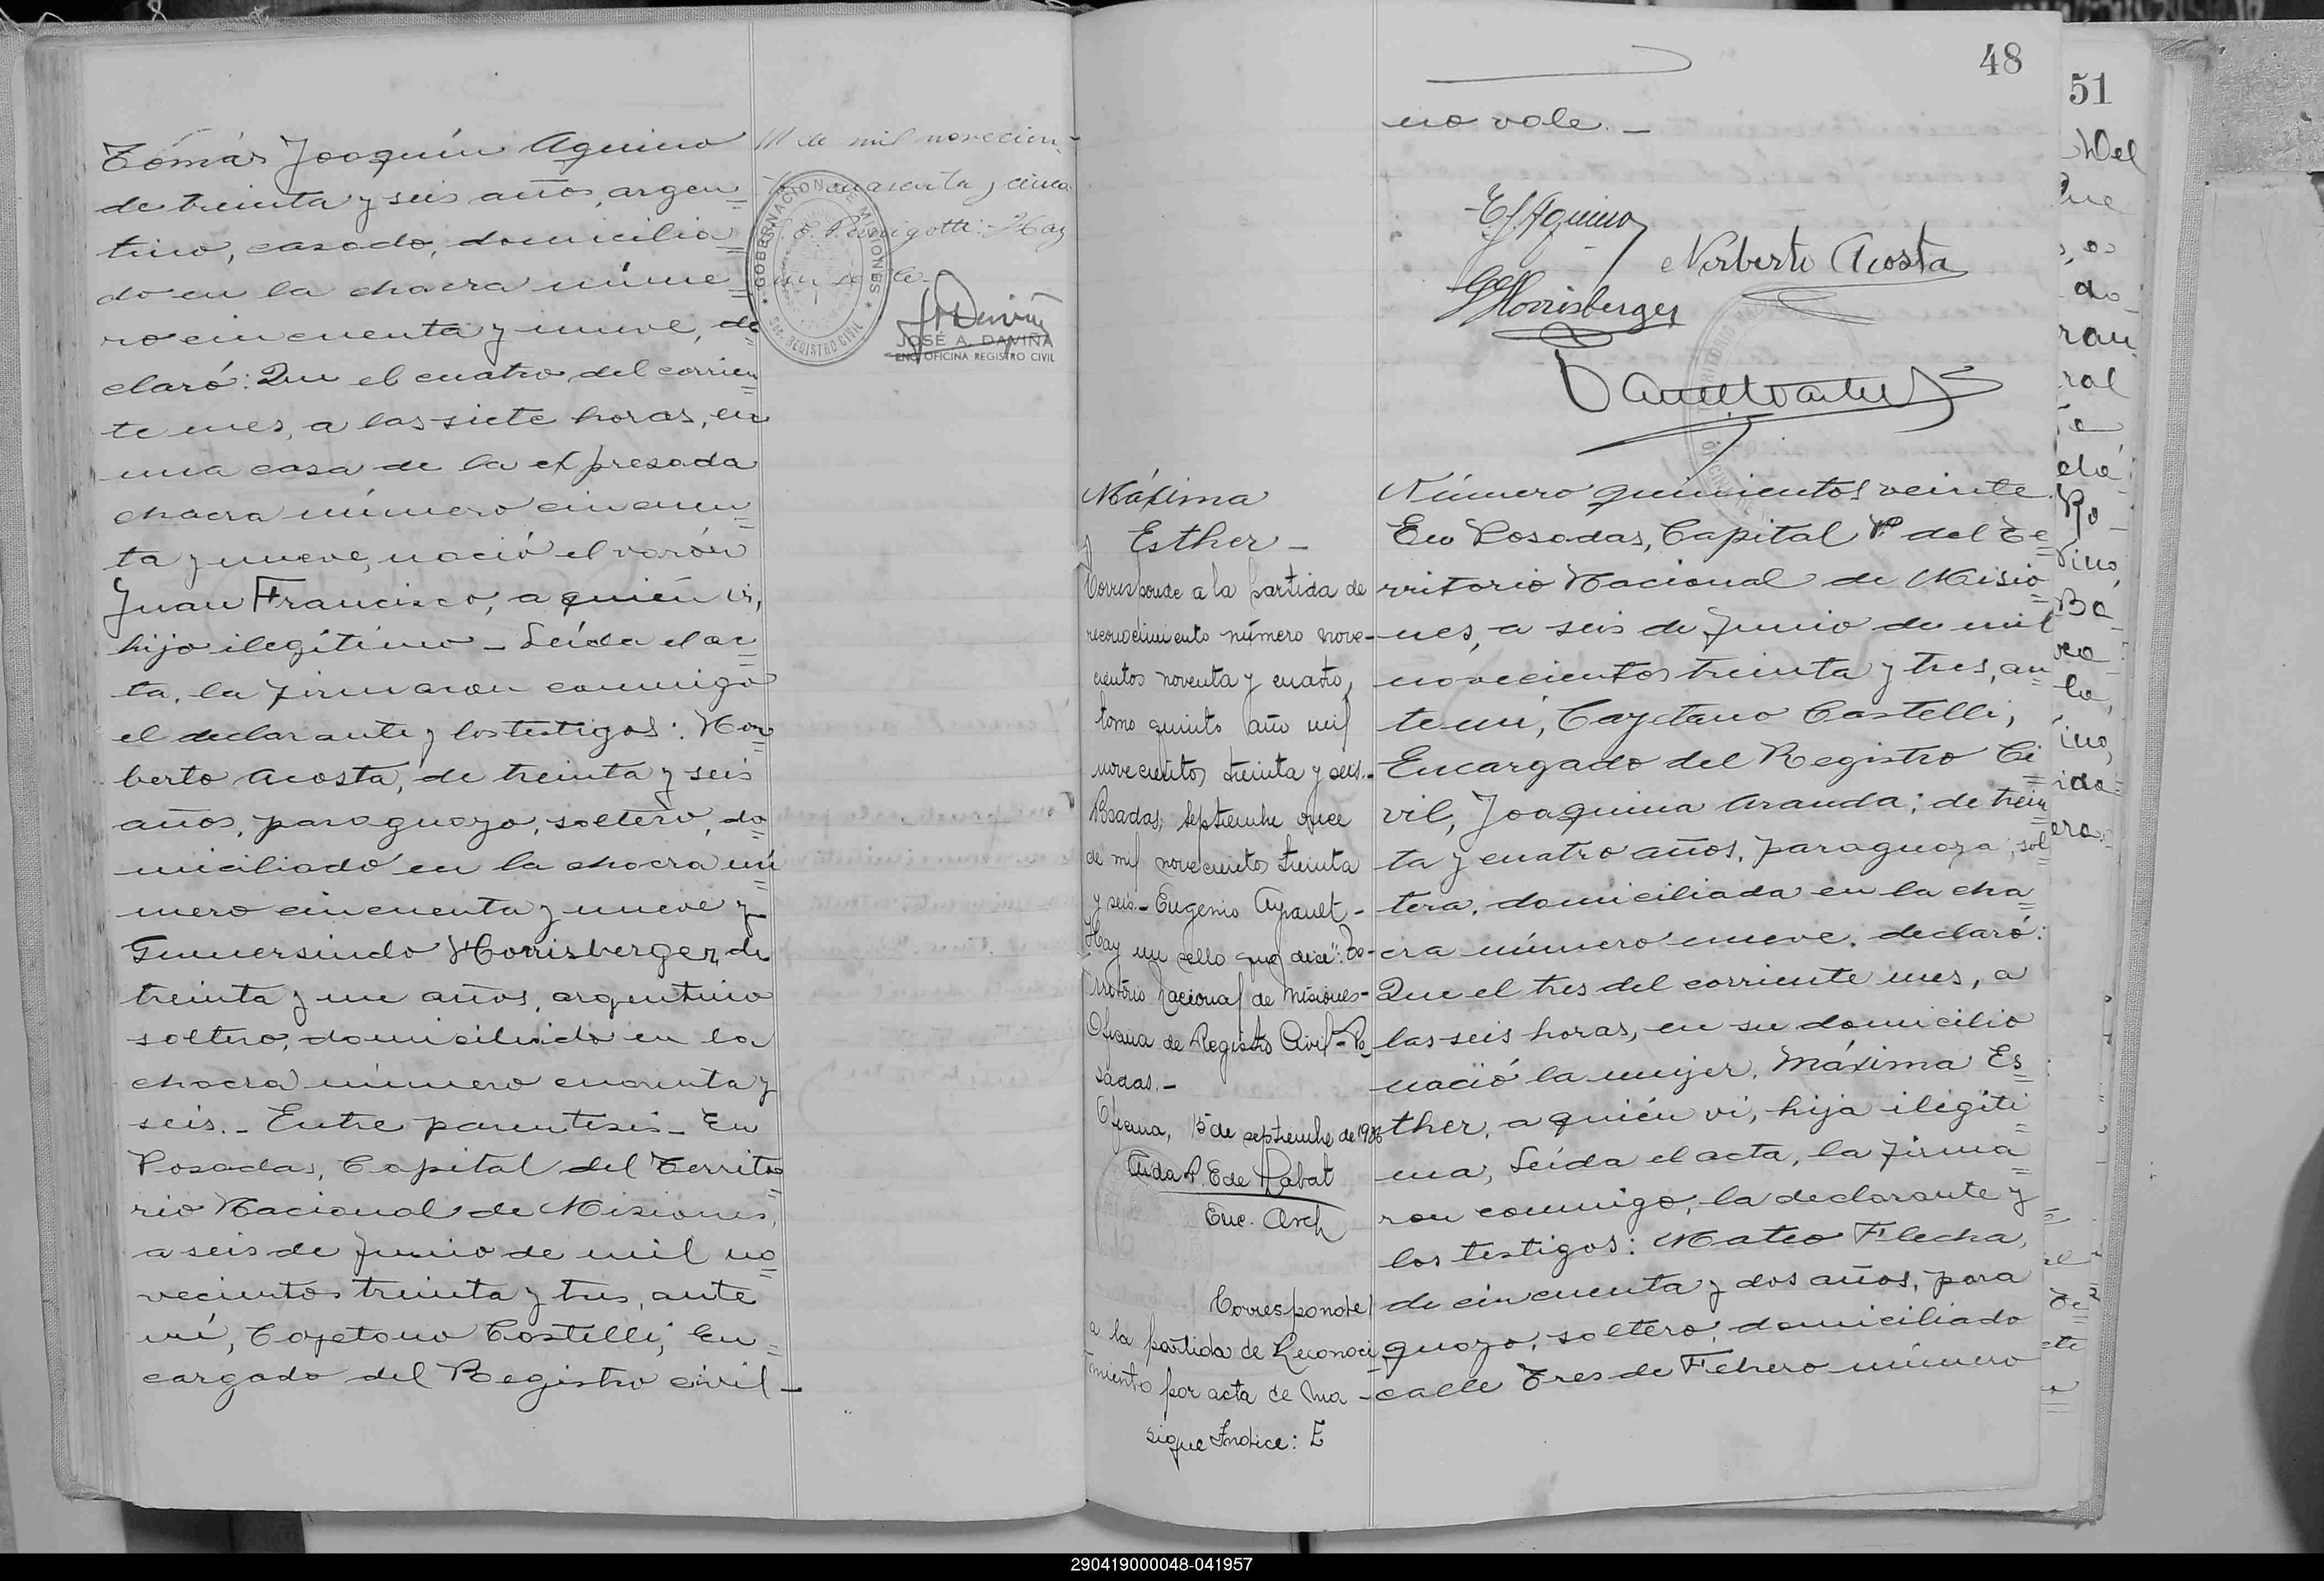 Tomás Joaquín Aquino
de treinta y seis años, argen=
tino, casado, domicilia=
do en la chacra núme=
ro cincuenta y nueve, de=
claró: Que el cuatro del corrien=
te mes, a las siete horas, en
una casa de la expresada
chacra número cincuen=
ta y nueve, nació el varón
Juan Francisco, a quién vi,
hijo ilegítimo - Leída el ac=
ta, la firmaron conmigo
el declarante y los testigos: Nor=
berto Acosta, de treinta y seis
años, paraguayo, soltero, do=
miciliado en la chacra nú=
mero cincuenta y nueve y
Gumersindo Horrisberger, de
treinta y un años, argentino
soltero, domiciliado en la
chacra número cuarenta y
seis. - Entre parentesis - En
Posadas, Capital del Territo=
rio Nacional de Misiones,
a seis de Junio de mil no=
vecientos treinta y tres, ante
mí, Cayetano Castelli, En=
cargado del Registro civil -
de mil novecien-
cuarenta y cinco
Hay
un sello
GOBERNACION DE MISIONES
SEC. REGISTRO CIVIL
JOSÉ A. DAVIÑA
ENC. OFICINA REGISTRO CIVIL
48
no vale. -
T. J. Aquino
Norberto Acosta
G Horrisberger
Máxima
Esther -
Corresponde a la partida de
reconocimiento número nove-
cientos noventa y cuatro,
tomo quinto año mil
novecientos treinta y seis.-
Posadas, Septiembre once
de mil novecientos treinta
y seis.- Eugenio Aypault -
Hay un sello que dice: "Te-
rritorio Nacional de Misiones-
Oficina de Registro Civil - Po-
sadas. -
Oficina, 15 de septiembre de 1936
P. E de Rabat
Enc. Arch
Corresponde
a la partida de Reconoci-
miento por acta de Ma-
sigue Indice: E
Número quinientos veinte
En Posadas, Capital del Te=
rritorio Nacional de Misio=
nes, a seis de Junio de mil
novecientos treinta y tres, an=
te mí, Cayetano Castelli,
Encargado del Registro Ci=
vil, Joaquina Aranda; de trein=
ta y cuatro años, paraguaya, sol=
tera, domiciliada en la cha=
cra número nueve, declaró:
Que el tres del corriente mes, a
las seis horas, en su domicilio
nació la mujer, Máxima Es=
ther, a quién vi, hija ilegíti=
ma, Leída el acta, la firma=
ron conmigo, la declarante y
los testigos: Mateo Flecha,
de cincuenta y dos años, para=
guayo, soltero, domiciliado
calle Tres de Febrero número
51
290419000048-041957